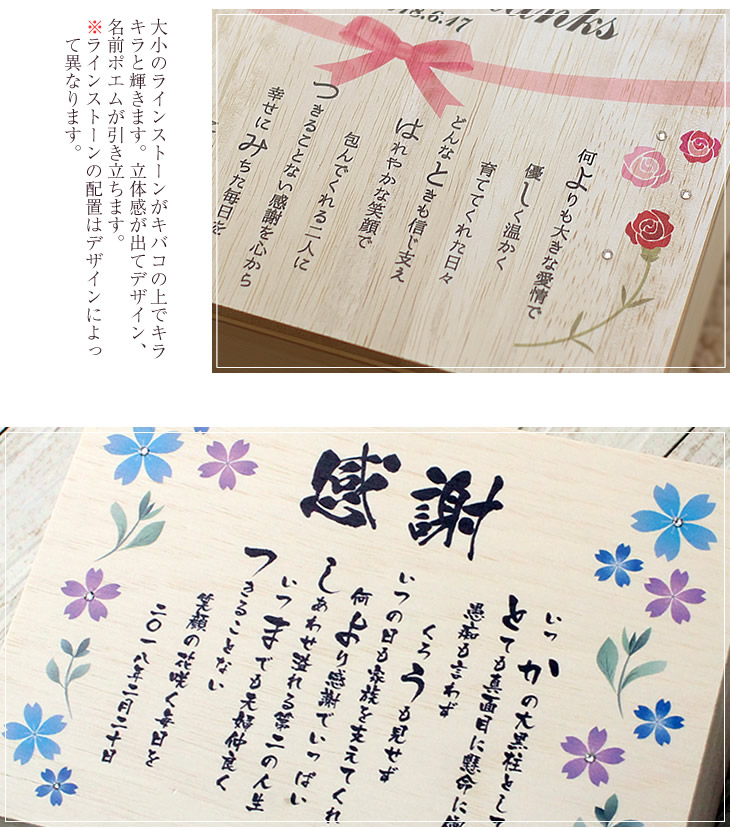 大小のラインストーンがキバコの上でキラ
キラと輝きます。立体感が出てデザイン、
名前ポエムが引き立ちます。
※ラインストーンの配置はデザインによっ
て異なります。
18.6.17
何よりも大きな愛情で
優しく温かく
育ててくれた日々
どんなときも信じ支え
はれやかな笑顔で
包んでくれる二人に
つきることない感謝を心から
幸せにみちた毎日を
感謝
いつかの大黒柱として
とても真面目に懸命に
愚痴も言わず
くろうも見せず
いつの日も家族を支えてくれ
何より感謝でいっぱい
しあわせ溢れる第二の人生
いつまでも夫婦仲良く
つきることない
笑顔の花咲く毎日を
二〇一八年二月二十日